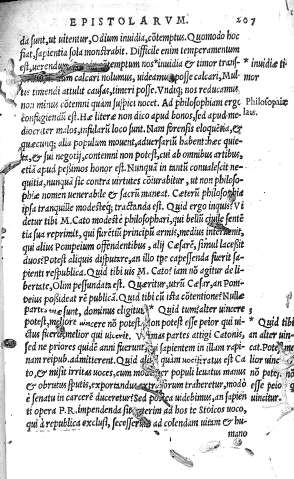 EPISTOLARVM. 207
da sunt, ut uitentur, Odium inuidia, cõtemptus. Quomodo hoc
fiat, sapientia sola monstrabit. Difficile enim temperamentum
est, uerendum contemptum nos inuidiæ & timor trans-
calcari nolumus, uideamur posse calcari, Mul
tas timendi attulit causas, timeri posse. Vndiq; nos reducamus,
non minus cõtemni quàm suspici nocet. Ad philosophiam ergo
confugiendũ est. Hæ literæ non dico apud bonos, sed apud me-
diocrer malos, infularũ loco sunt. Nam forensis eloquẽtia, &
quæcunq; alia populum mouent, aduersariũ habent: hæc quie-
ta, & sui negotij, contemni non potest, cui ab omnibus artibus,
etiã apud pessimos honor est. Nunquã in tantũ conualescet ne-
quitia, nunquã sic contra uirtutes coniurabitur, ut non philoso-
phiæ nomen uenerabile & sacrũ maneat. Cæterũ philosophia
ipsa tranquillè modestèq; tractanda est. Quid ergo inquis? Vi
detur tibi M. Cato modestè philosophari, qui bellũ ciuile sentẽ
tia sua reprimit, qui furẽtiũ principũ armis, medius interuenit,
qui alijs Pompeium offendentibus, alij Cæsarẽ, simul lacessit
duos? Potest aliquis disputare, an illo tẽpe capessenda fuerit sa-
pienti respublica. Quid tibi uis M. Cato? iam nõ agitur de li-
bertate, Olim pessundata est. Quæritur, utrũ Cæsar, an Pom-
peius possideat rẽ publicã. Quid tibi cũ ista cõtentione? Nullæ
partes sunt, dominus eligitur. Quid tua, uter uincere
potest, melior uincere nõ potest. non potest esse peior qui ui-
cerit. Vltimas partes attigi Catonis,
sed ne priores quidẽ anni fuerunt, qui sapientem in illam rapi-
nam reipub. admitterent. Quid aliud quàm uociferatus est Ca
to, & misit irritas uoces, cum modo per populi leuatus manus
& obrutus sputis, exportandus extra forum traheretur, modò
è senatu in carcerẽ duceretur? Sed postea uidebimus, an sapien
ti opera P. R. impendenda sit: interim ad hos te Stoicos uoco,
qui à republica exclusi, secesserunt ad colendam uitam & hu-
mano
* inuidiæ ti-
mor
Philosophiæ
laus.
* Quid tibi
an alter uin-
cat. Potest me
lior uincere
nõ potest.
esse peior
uincitur.